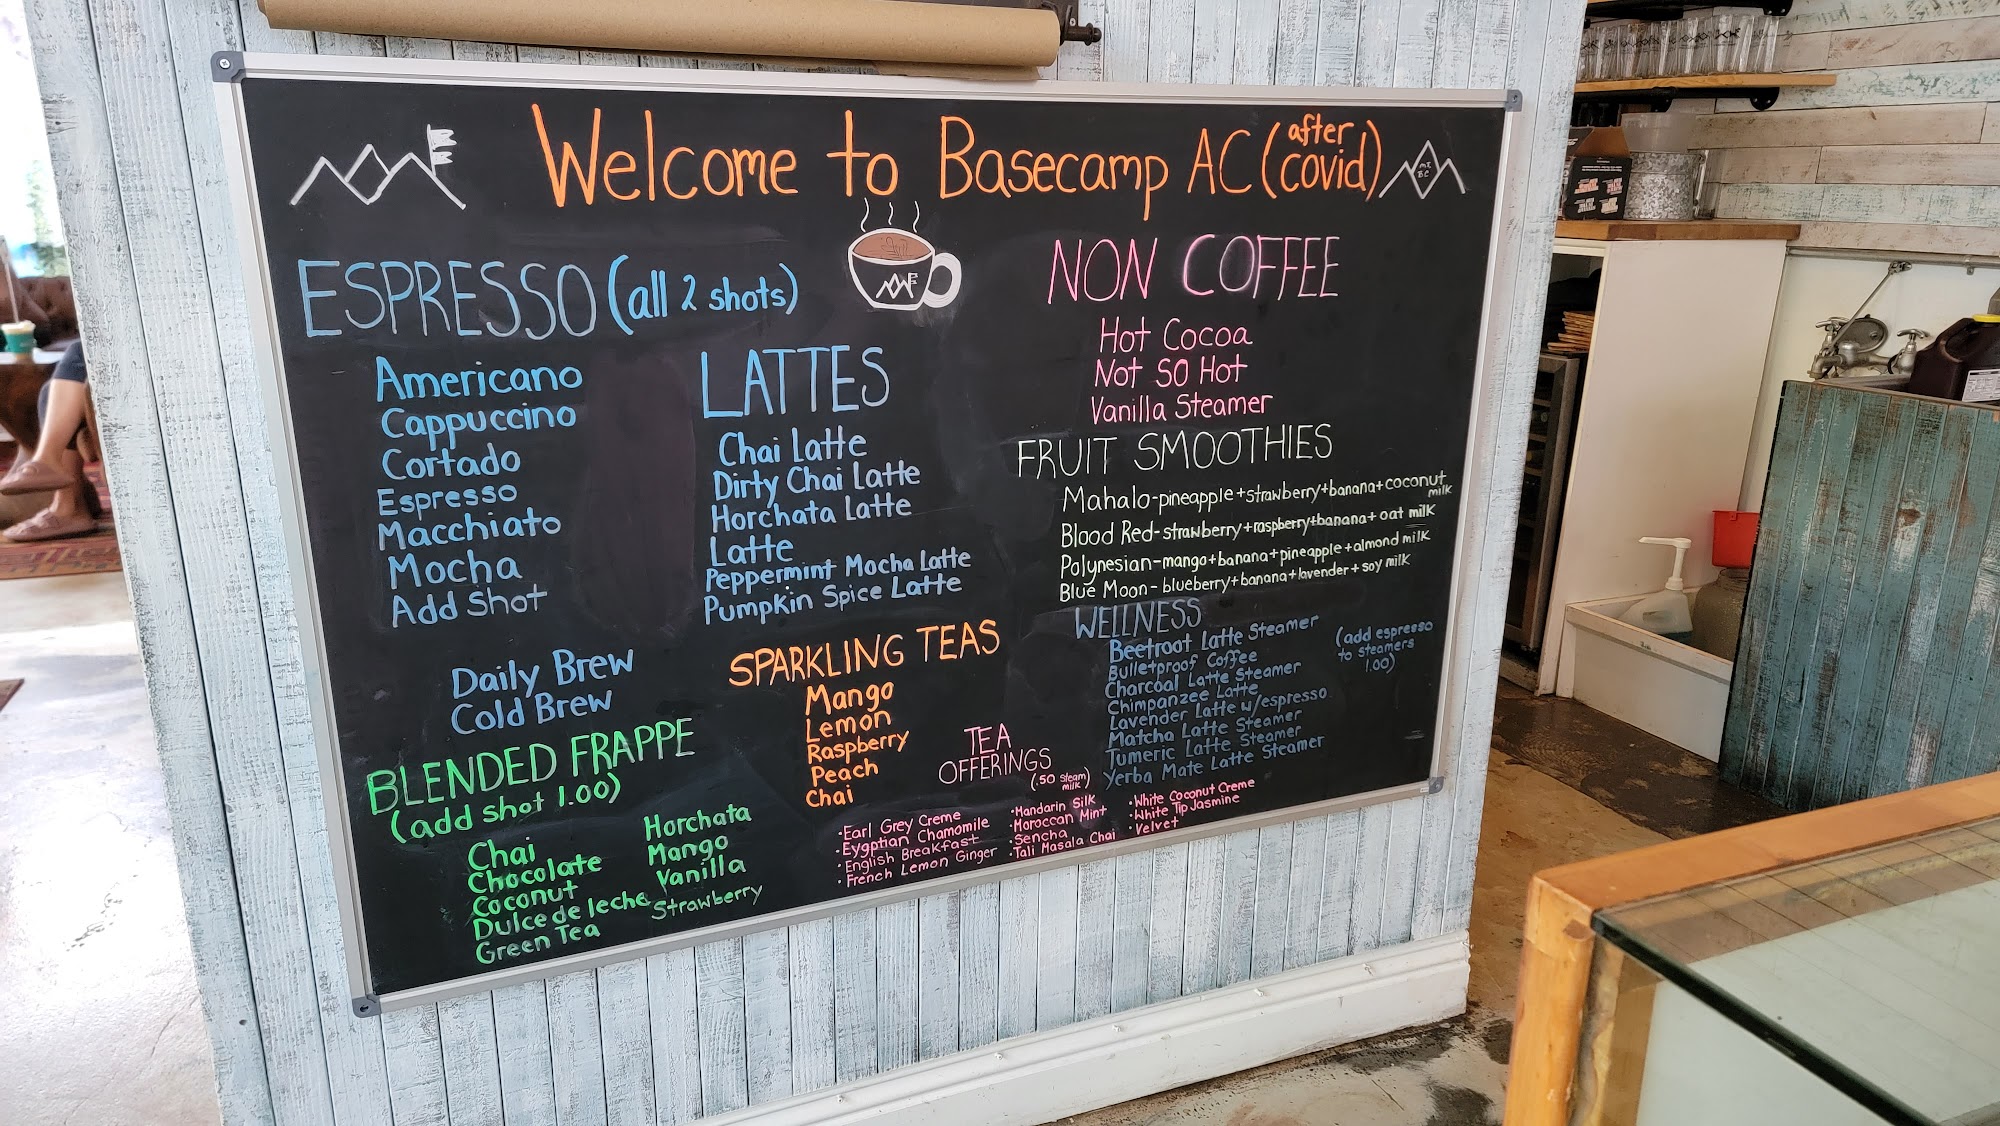 Welcome to Basecamp AC (after covid)
ESPRESSO (all 2 shots)
Americano
Cappuccino
Cortado
Espresso
Macchiato
Mocha
Add Shot
Daily Brew
Cold Brew
BLENDED FRAPPE
(add shot 1.00)
Chai
Chocolate
Coconut
Dulce de leche
Green Tea
Horchata
Mango
Vanilla
Strawberry
LATTES
Chai Latte
Dirty Chai Latte
Horchata Latte
Latte
Peppermint Mocha Latte
Pumpkin Spice Latte
SPARKLING TEAS
Mango
Lemon
Raspberry
Peach
Chai
TEA
OFFERINGS
(.50 steam
milk)
•Earl Grey Creme
•Eygptian Chamomile
•English Breakfast
•French Lemon Ginger
•Mandarin Silk
•Moroccan Mint
•Sencha
•Tali Masala Chai
•White Coconut Creme
•White Tip Jasmine
•Velvet
NON COFFEE
Hot Cocoa
Not SO Hot
Vanilla Steamer
FRUIT SMOOTHIES
Mahalo-pineapple+strawberry+banana+coconut
milk
Blood Red-strawberry+raspberry+banana+oat milk
Polynesian-mango+banana+pineapple+almond milk
Blue Moon-blueberry+banana+lavender+soy milk
WELLNESS
Beetroot Latte Steamer
Bulletproof Coffee
Charcoal Latte Steamer
Chimpanzee Latte
Lavender Latte w/espresso
Matcha Latte Steamer
Tumeric Latte Steamer
Yerba Mate Latte Steamer
(add espresso
to steamers
1.00)